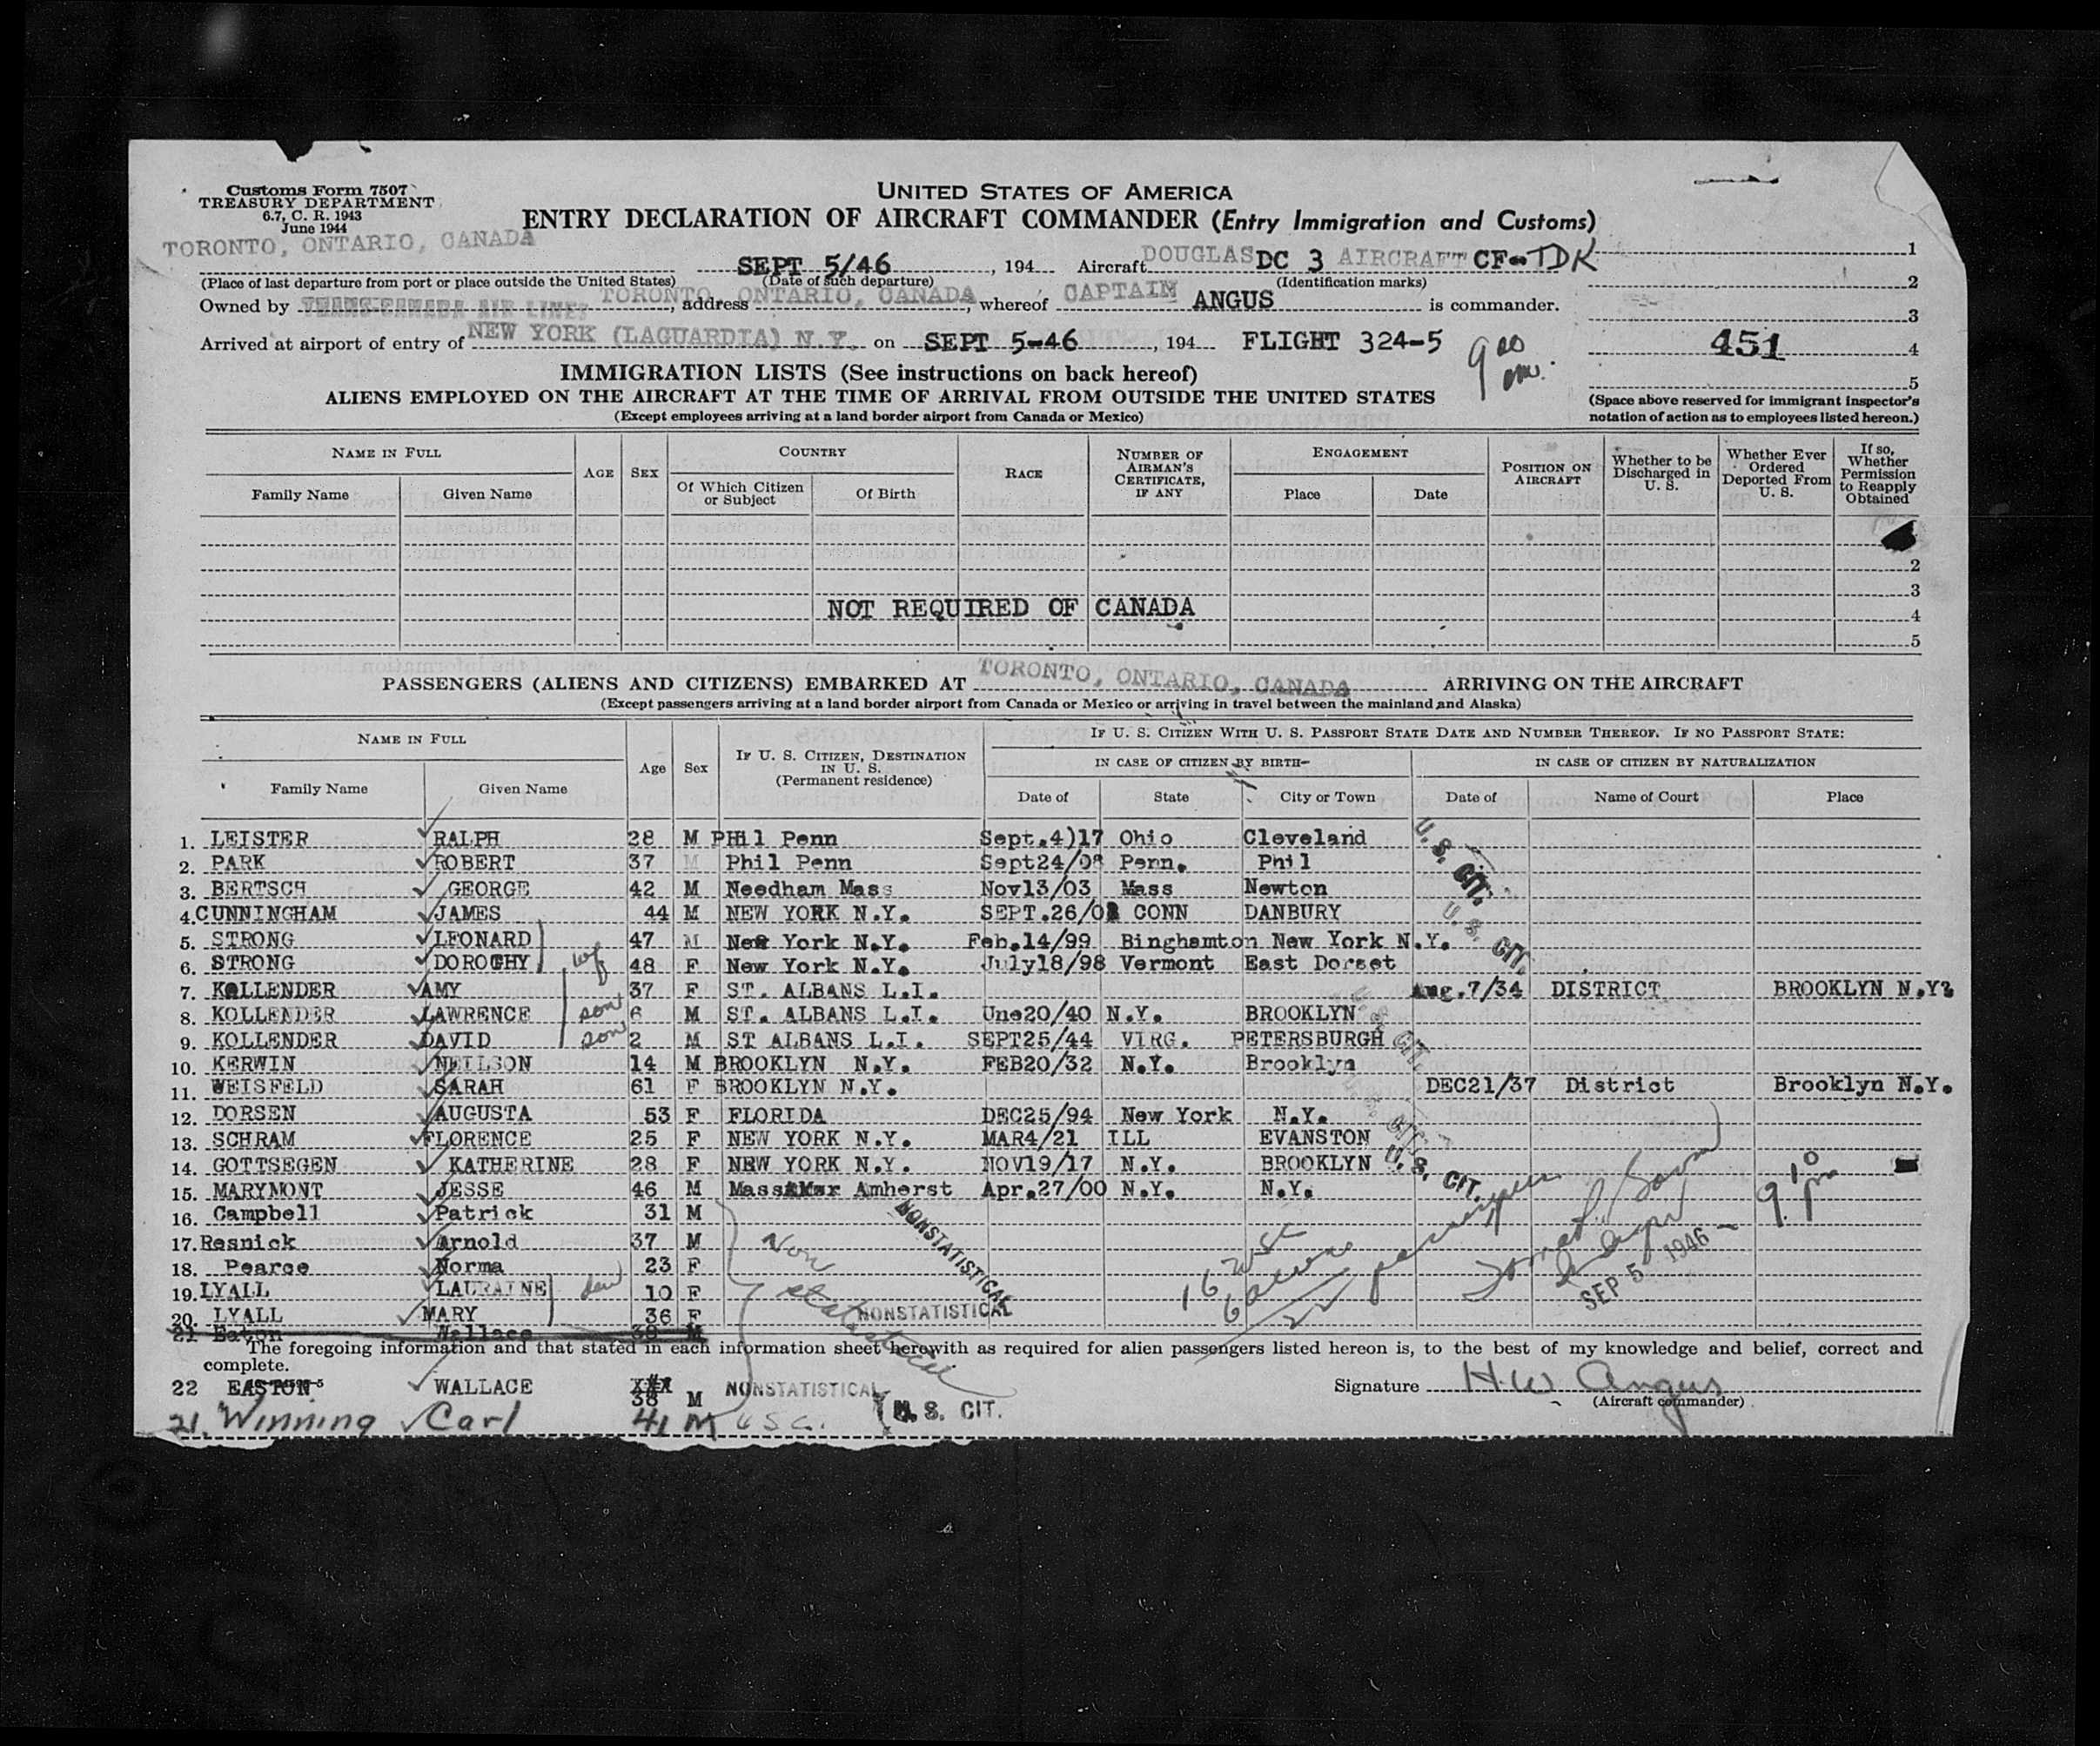 Customs Form 7507
TREASURY DEPARTMENT
6.7, C. R. 1943
June 1944
UNITED STATES OF AMERICA
ENTRY DECLARATION OF AIRCRAFT COMMANDER (Entry Immigration and Customs)
TORONTO, ONTARIO, CANADA SEPT 5/46, 194 Aircraft DOUGLAS DC 3 AIRCRAFT CF-TDK 1
(Place of last departure from port or place outside the United States) (Date of such departure) (Identification marks) 2
Owned by TRANS-CANADA AIR LINES TORONTO, address ONTARIO, CANADA, whereof CAPTAIN ANGUS is commander. 3
Arrived at airport of entry of NEW YORK (LAGUARDIA) N.Y. on SEPT 5-46, 194 FLIGHT 324-5 9 00 pm. 451 4
5
IMMIGRATION LISTS (See instructions on back hereof)
ALIENS EMPLOYED ON THE AIRCRAFT AT THE TIME OF ARRIVAL FROM OUTSIDE THE UNITED STATES
(Except employees arriving at a land border airport from Canada or Mexico)
(Space above reserved for immigrant inspector's
notation of action as to employees listed hereon.)
NAME IN FULL AGE SEX COUNTRY RACE NUMBER OF AIRMAN'S CERTIFICATE, IF ANY ENGAGEMENT POSITION ON AIRCRAFT Whether to be Discharged in U. S. Whether Ever Ordered Deported From U. S. If so, Whether Permission to Reapply Obtained
Family Name Given Name Of Which Citizen or Subject Of Birth Place Date
2
3
NOT REQUIRED OF CANADA 4
5
PASSENGERS (ALIENS AND CITIZENS) EMBARKED AT TORONTO, ONTARIO, CANADA ARRIVING ON THE AIRCRAFT
(Except passengers arriving at a land border airport from Canada or Mexico or arriving in travel between the mainland and Alaska)
NAME IN FULL Age Sex IF U. S. CITIZEN, DESTINATION IN U. S. (Permanent residence) IF U. S. CITIZEN WITH U. S. PASSPORT STATE DATE AND NUMBER THEREOF. IF NO PASSPORT STATE:
IN CASE OF CITIZEN BY BIRTH- IN CASE OF CITIZEN BY NATURALIZATION
Family Name Given Name Date of State City or Town Date of Name of Court Place
1. LEISTER RALPH 28 M PHil Penn Sept.4)17 Ohio Cleveland U. S. CIT.
2. PARK ROBERT 37 M Phil Penn Sept24/08 Penn. Phil
3. BERTSCH GEORGE 42 M Needham Mass Nov13/03 Mass Newton
4. CUNNINGHAM JAMES 44 M NEW YORK N.Y. SEPT.26/0 CONN DANBURY U. S. CIT.
5. STRONG LEONARD 47 M New York N.Y. Feb.14/99 Binghamton New York N.Y.
6. STRONG DOROTHY wf 48 F New York N.Y. July18/98 Vermont East Dorset
7. KOLLENDER AMY 37 F ST. ALBANS L.I. Aug.7/34 DISTRICT BROOKLYN N.Y.
8. KOLLENDER LAWRENCE son 6 M ST. ALBANS L.I. Une20/40 N.Y. BROOKLYN U. S. CIT.
9. KOLLENDER DAVID son 2 M ST ALBANS L.I. SEPT25/44 VIRG. PETERSBURGH
10. KERWIN NEILSON 14 M BROOKLYN N.Y. FEB20/32 N.Y. Brooklyn
11. WEISFELD SARAH 61 F BROOKLYN N.Y. DEC21/37 District Brooklyn N.Y.
12. DORSEN AUGUSTA 53 F FLORIDA DEC25/94 New York N.Y. U. S. CIT.
13. SCHRAM FLORENCE 25 F NEW YORK N.Y. MAR4/21 ILL EVANSTON
14. GOTTSEGEN KATHERINE 28 F NEW YORK N.Y. NOV19/17 N.Y. BROOKLYN U. S. CIT.
15. MARYMONT JESSE 46 M Mass Amherst Apr.27/00 N.Y. N.Y. 9 10 pm
16. Campbell Patrick 31 M NONSTATISTICAL
17. Resnick Arnold 37 M Non 16 USC
18. Pearce Norma 23 F 6 aliens SEP 5 1946
19. LYALL LAURAINE dau 10 F statistical 22 passengers
20. LYALL MARY 36 F NONSTATISTICAL
21 Eaton Wallace 38 M
The foregoing information and that stated in each information sheet herewith as required for alien passengers listed hereon is, to the best of my knowledge and belief, correct and
complete.
22 EASTON WALLACE 38 M NONSTATISTICAL Signature H.W. Angus
(Aircraft commander)
21. Winning Carl 41 M USC. U. S. CIT.